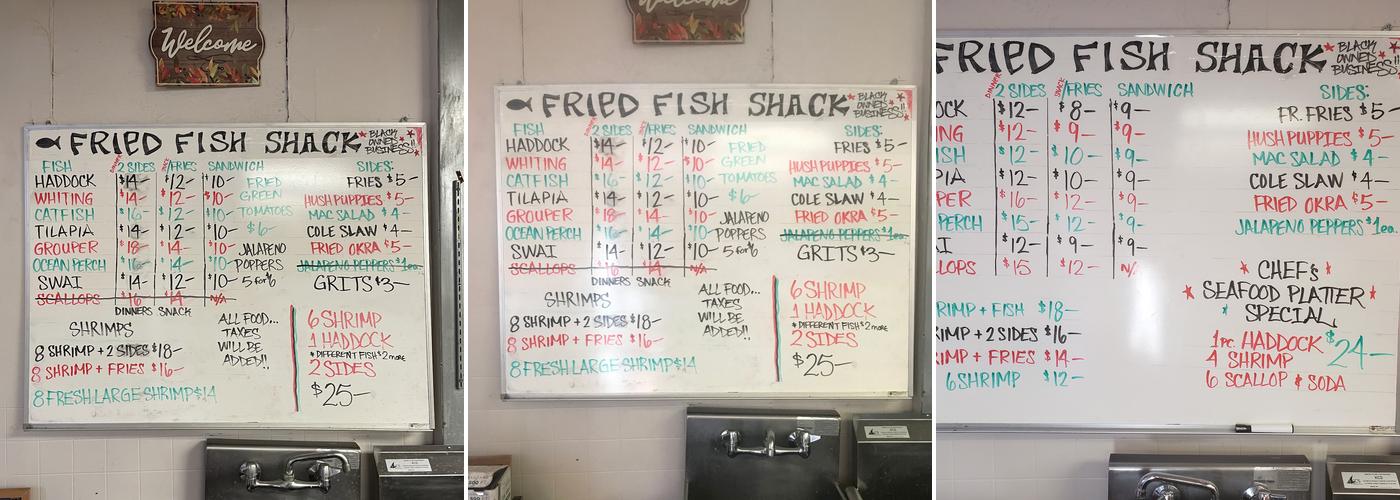 Welcome
FRIED FISH SHACK
BLACK
OWNED
BUSINESS!!
FISH DINNER 2 SIDES SNACK /FRIES SANDWICH SIDES:
HADDOCK $14- $12- $10- FRIED FRIES $5-
WHITING $14- $12- $10- GREEN HUSHPUPPIES $5-
CATFISH $16- $12- $10- TOMATOES MAC SALAD $4-
TILAPIA $14- $12- $10- $6- COLE SLAW $4-
GROUPER $18- $14- $10- JALAPENO FRIED OKRA $5-
OCEAN PERCH $16- $14- $10- POPPERS JALAPENO PEPPERS $1ea.
SWAI $14- $12- $10- 5 for $6 GRITS $3-
SCALLOPS $16 $14 N/A
DINNERS SNACK
SHRIMPS
8 SHRIMP + 2 SIDES $18-
8 SHRIMP + FRIES $16-
8 FRESH LARGE SHRIMP $14
ALL FOOD...
TAXES
WILL BE
ADDED!!
6 SHRIMP
1 HADDOCK
* DIFFERENT FISH $2 more
2 SIDES
$25-
Welcome
FRIED FISH SHACK
BLACK
OWNED
BUSINESS!!
FISH DINNER 2 SIDES /FRIES SANDWICH SIDES:
HADDOCK $14- $12- $10- FRIED FRIES $5-
WHITING $14- $12- $10- GREEN HUSHPUPPIES $5-
CATFISH $16- $12- $10- TOMATOES MAC SALAD $4-
TILAPIA $14- $12- $10- $6- COLE SLAW $4-
GROUPER $18- $14- $10- JALAPENO FRIED OKRA $5-
OCEAN PERCH $16- $14- $10- POPPERS JALAPENO PEPPERS $1ea.
SWAI $14- $12- $10- 5 for $6 GRITS $3-
SCALLOPS $16 $14 N/A
DINNERS SNACK
SHRIMPS
8 SHRIMP + 2 SIDES $18-
8 SHRIMP + FRIES $16-
8 FRESH LARGE SHRIMP $14
ALL FOOD...
TAXES
WILL BE
ADDED!!
6 SHRIMP
1 HADDOCK
* DIFFERENT FISH $2 more
2 SIDES
$25-
FRIED FISH SHACK
BLACK
OWNED
BUSINESS!!
DINNER 2 SIDES SNACK /FRIES SANDWICH SIDES:
OCK $12- $8- $9- FR. FRIES $5
ING $12- $9- $9- HUSHPUPPIES $5-
ISH $12- $10- $9- MAC SALAD $4-
PIA $12- $10- $9- COLE SLAW $4-
PER $16- $12- $9- FRIED OKRA $5-
PERCH $15- $12- $9- JALAPEÑO PEPPERS $1ea.
AI $12- $9- $9-
LOPS $15 $12- N/A
CHEF's
SEAFOOD PLATTER
SPECIAL
1pc. HADDOCK $24-
4 SHRIMP
6 SCALLOP & SODA
RIMP + FISH $18-
RIMP + 2 SIDES $16-
IMP + FRIES $14-
6 SHRIMP $12-